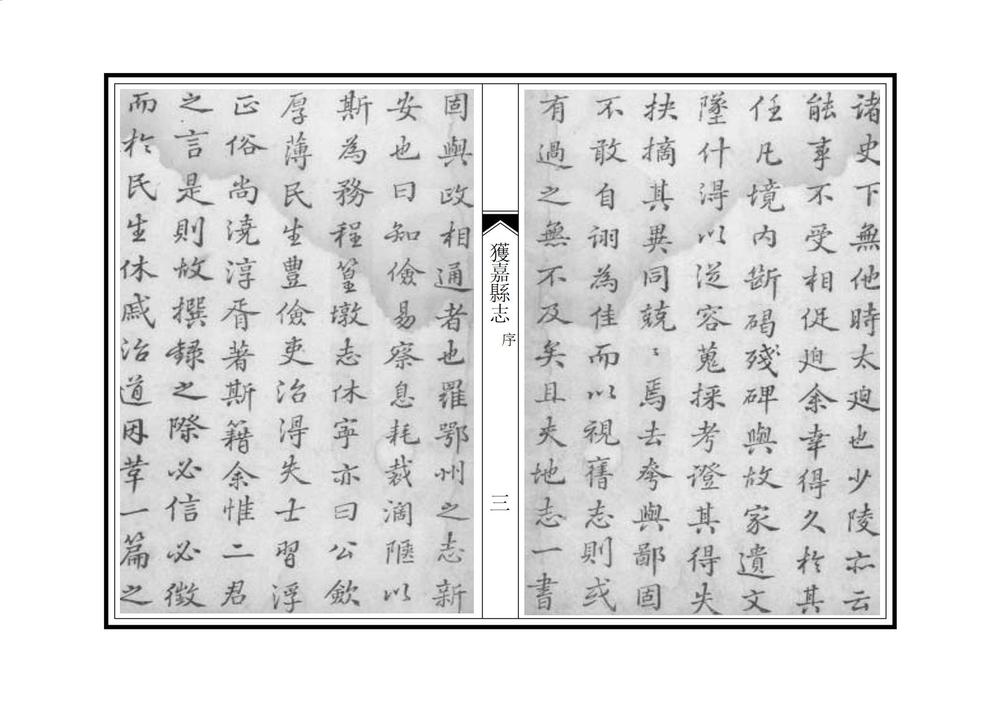 诸史下無他時太迫也少陵亦云
能事不受相促迫余幸得久於其
任凡境内斷碣殘碑與故家遺文
墜什得以従容蒐採考證其得失
抉摘其異同兢〻焉去夸與鄙固
不敢自詡為佳而以視舊志則或
有過之無不及矣且夫地志一書
獲嘉縣志
序
三
固與政相通者也羅鄂州之志新
安也曰知儉易察息耗裁濶隘以
斯為務程篁墩志休寧亦曰公歛
厚薄民生豊儉吏治得失士習浮
正俗尚澆淳胥著斯籍余惟二君
之言是則故撰録之際必信必徴
而於民生休戚治道因革一篇之